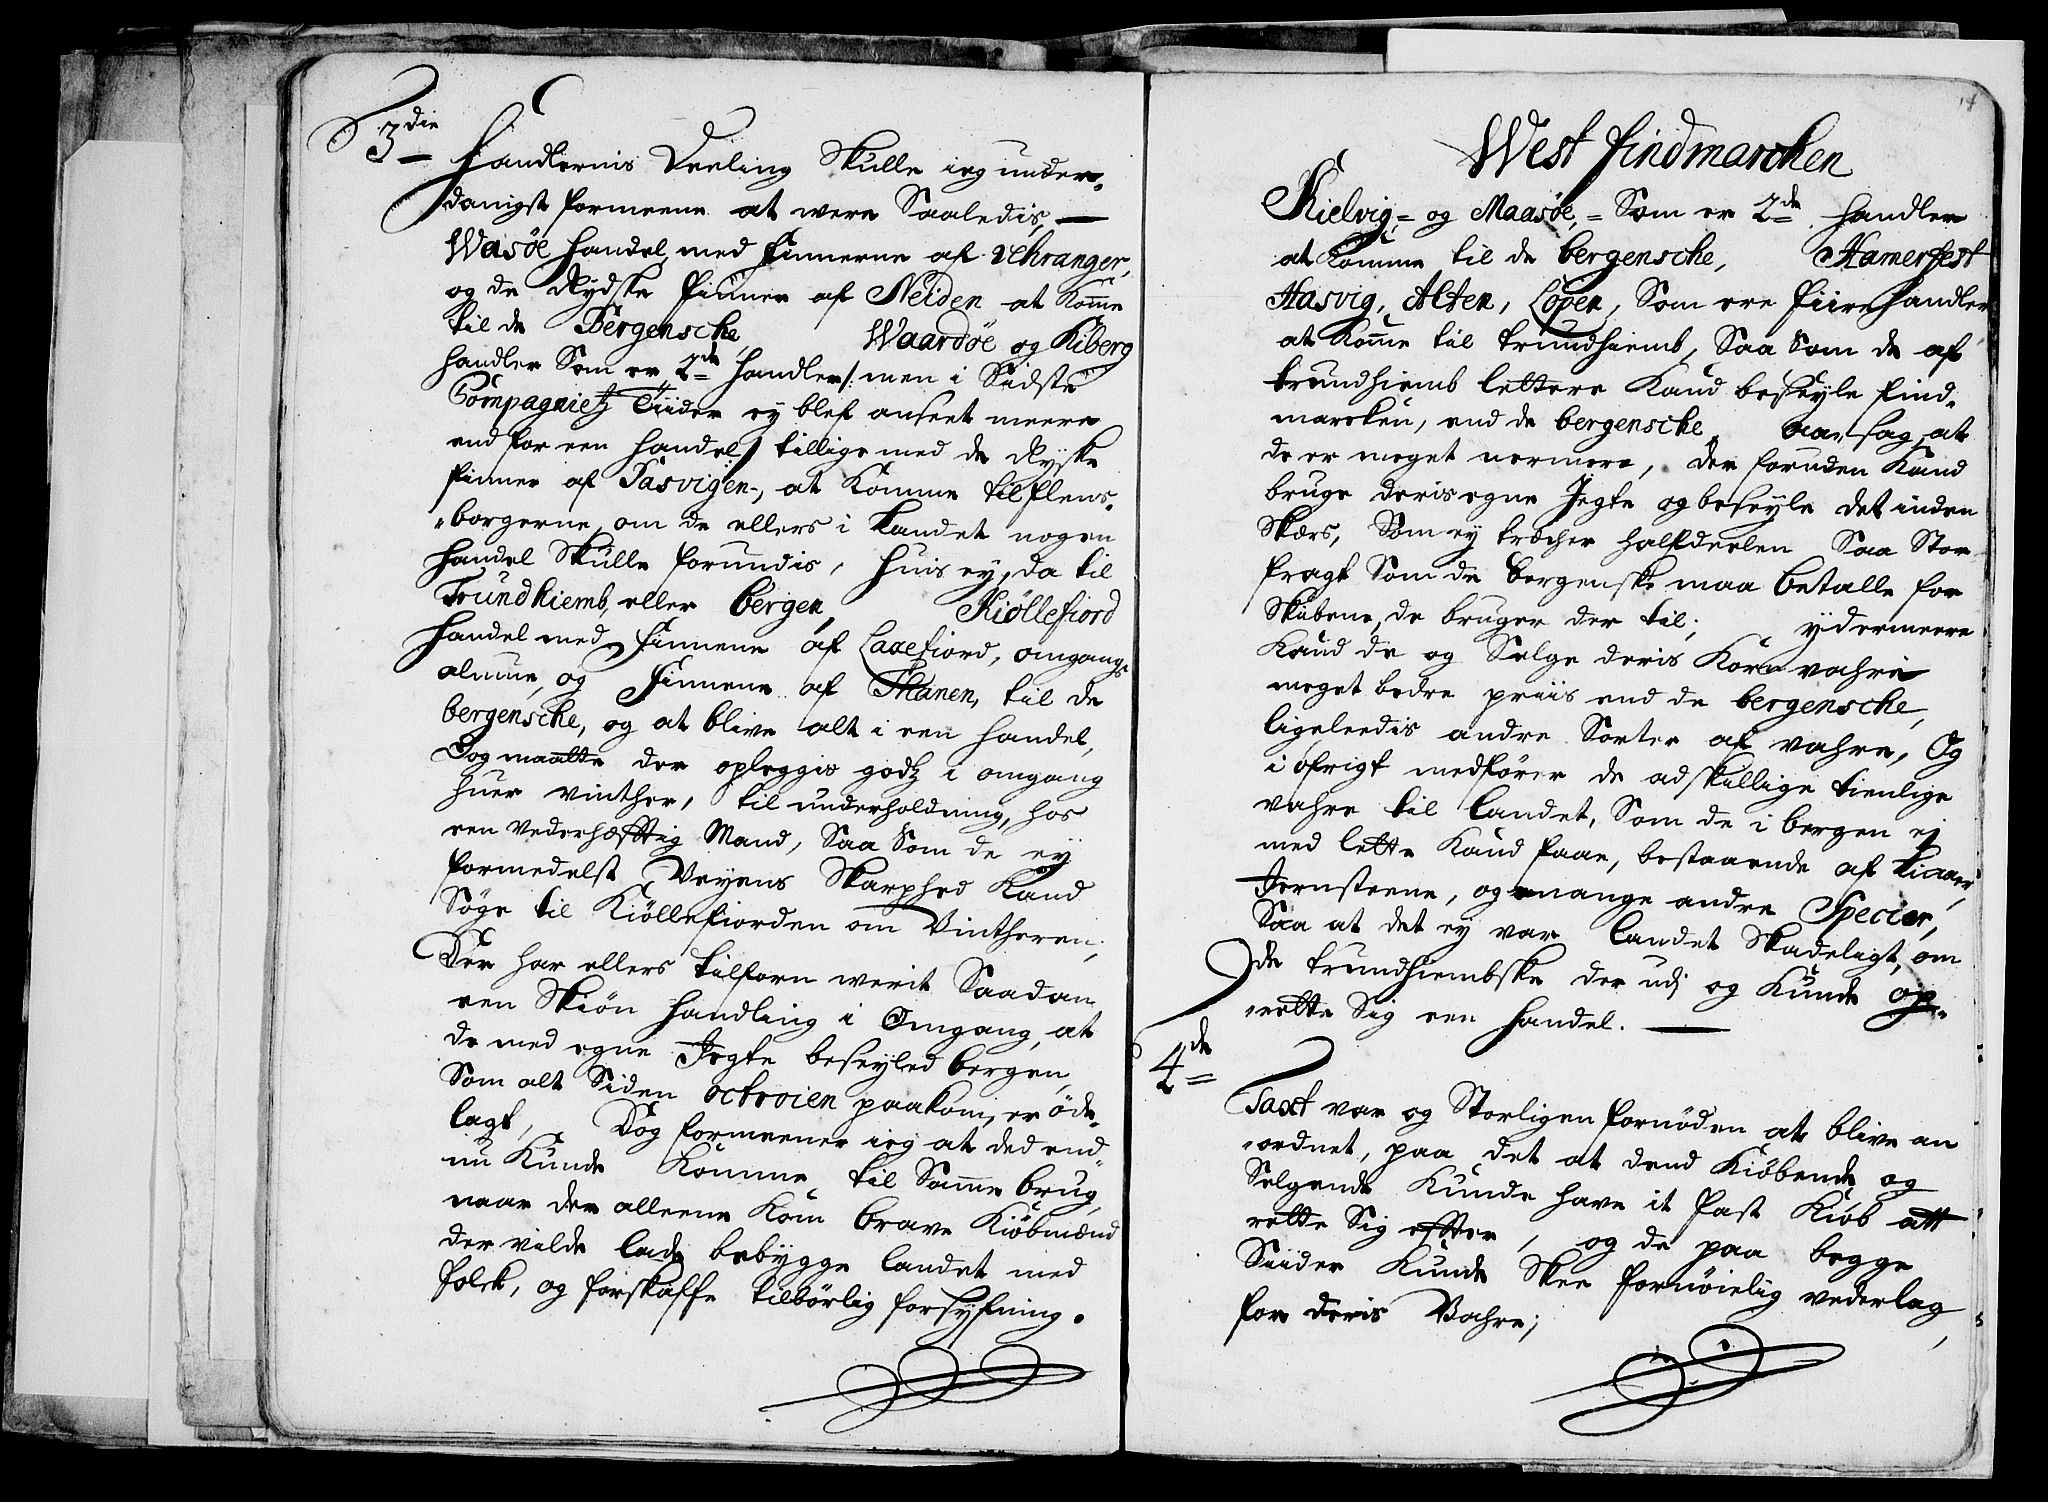 3die Handlernis Deeling Skulle ieg under-
danigst formeene at were Saaledis, —
Wasöe handel, med finnerne af Vehranger,
og de Rydske finner af Neiden at Komme
til de Bergensche, Waardöe og Kiberg
handler Som er 2de handler /: men i Sidste
Compagnietz Tiider ey blef anseet meere
end for een handel / tillige med de Ryske
finner af Pasvigen, at Komme til flens-
-borgerne, om de ellers i Landet nogen
handel Skulle forundis, huis ey, da til
Trundhiemb, eller Bergen, Kiöllefiord
handel med finnene af Laxefiord, omgangs
almue, og finnene af Thanen, til de
bergensche, og at blive alt i een handel,
Dog maatte der opleggis godtz i omgang
huer vinther, til underholdning, hos
een Vederhæfftig Mand, Saa Som de ey
formedelst Veyens Skarphed Kand
Söge til Kiöllefiorden om Vintheren;
Der har ellers tilforn werit Saadan
een Skiön handling i Omgang, at
de med egne Jegte beseyled bergen,
Som alt Siden octroien paakom, er öde-
lagt, Dog formeener ieg at ded end-
nu Kunde Komme til Samme brug,
naar der alleene Kom brave Kiöbmænd
der vilde lade bebygge landet med
folck, og forskaffe tilbörlig forsyfning.
14
West findmarcken
Kielvig, = og Maasöe, = Som er 2de handler
at Komme til de bergensche, Hamerfest
Hasvig, Alten, Loppen, Som ere fiire handler
at Komme til trundhiemb, Saa Som de af
trundhiemb lettere Kand beseyle find-
marcken, end de bergensche, aarsag, at
de er meget nermere, Der foruden Kand
bruge deris egne Jegte og beseyle det inden
Skærs, Som ey trecher halfdeelen Saa Stor
fragt Som de bergenske maa betalle for
Skibene, de bruger der til; ydermeere
Kand de og Selge deris Korn vahre
meget bedre priis end de bergensche,
ligeleedis andre Sorter af vahre, Og
i öfrigt medförer de adskillige tienlige
vahre til Landet, Som de i bergen ej
med lette Kand faae, bestaaende af tiære,
Jernsteene, og mange andre Specier,
Saa at det ey var landet Skadeligt, om
de trundhiembske der udj og Kunde op-
-rette Sig een handel. —
4de
Taxt var og Storligen fornöden at blive an
-ordnet, paa det at dend Kiöbende og
Selgende Kunde have it fast Kiöb att
rette Sig effter, og de paa begge
Siider Kunde Skee fornöielig vederlag
for deris Vahre;